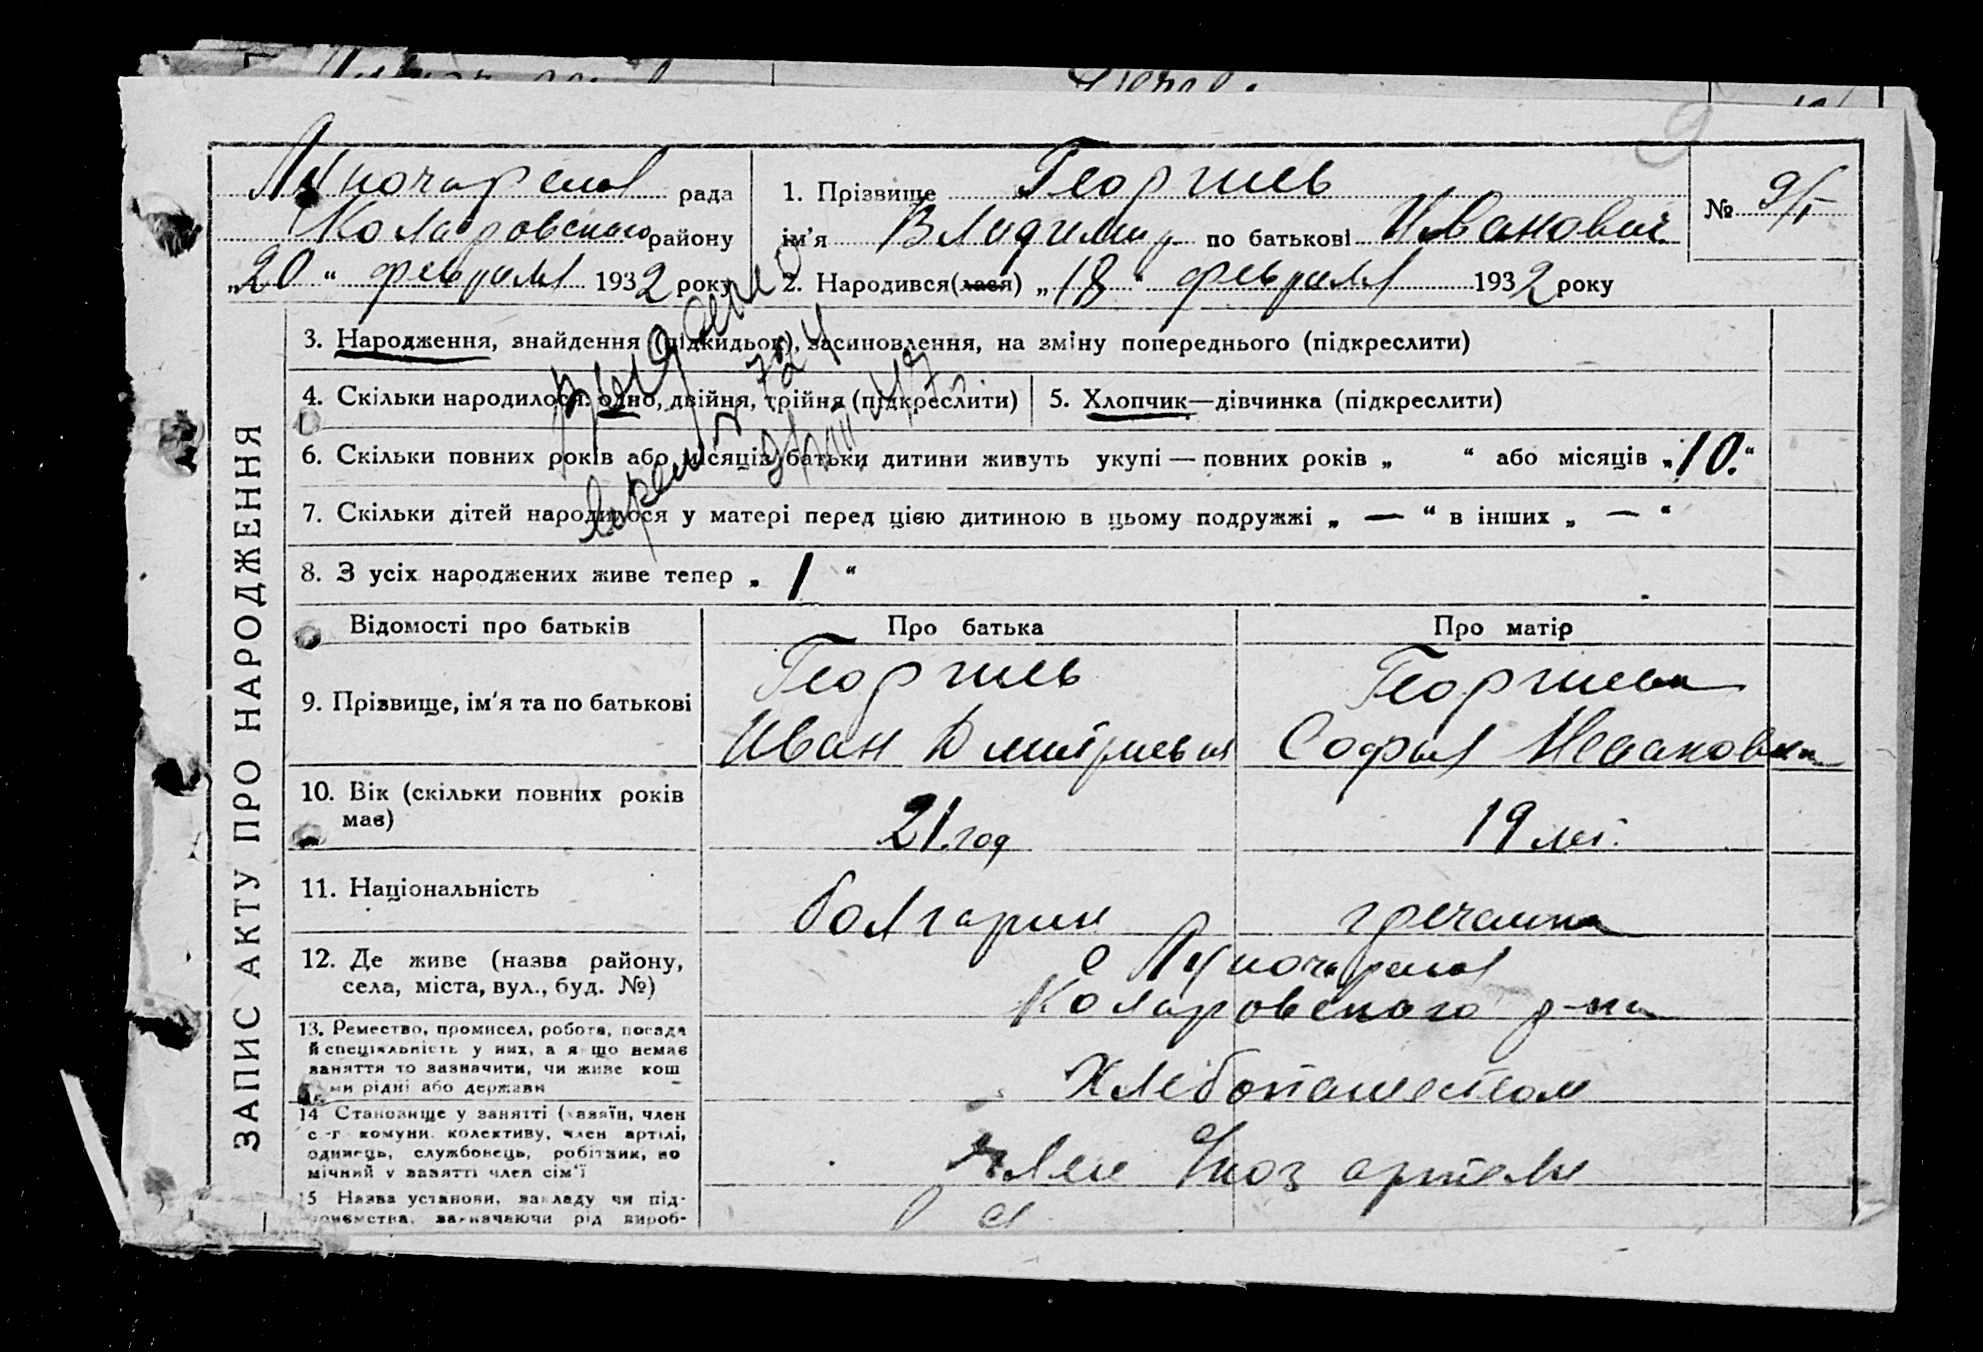 Луночарска рада
Коларовского району
„20“ февраля 1932 року
1. Прізвище Георгиев
ім'я Владимир по батькові Иванович
№ 9/
2. Народився(лася) „18“ февраля 1932 року
3. Народження, знайдення (підкидьок), засиновлення, на зміну попереднього (підкреслити)
4. Скільки народилося: одно, двійня, трійня (підкреслити)
5. Хлопчик—дівчинка (підкреслити)
6. Скільки повних років або місяців батьки дитини живуть укупі — повних років „ “ або місяців „10.“
7. Скільки дітей народилося у матері перед цією дитиною в цьому подружжі „ — “ в інших „ — “
8. З усіх народжених живе тепер „ 1 “
ЗАПИС АКТУ ПРО НАРОДЖЕННЯ
Відомості про батьків
Про батька
Про матір
9. Прізвище, ім'я та по батькові
Георгиев
Иван Дмитриевич
Георгиева
Софья Ивановна
10. Вік (скільки повних років
має)
21 год
19 лет.
11. Національність
болгарин
гречанка
12. Де живе (назва району,
села, міста, вул., буд. №)
с Луночарска
Коларовского р-на
13. Ремество, промисел, робота, посада
й спеціяльність у них, а якщо немає
заняття то зазначити, чи живе кош
ми рідні або держави
Хлебопашеством
14 Становище у занятті (хазяїн, член
с.-г. комуни, колективу, член артілі,
одинець, службовець, робітник, по
мічний у занятті член сім'ї
член артели
15 Назва установи, закладу чи під-
приємства, зазначаючи рід вироб-